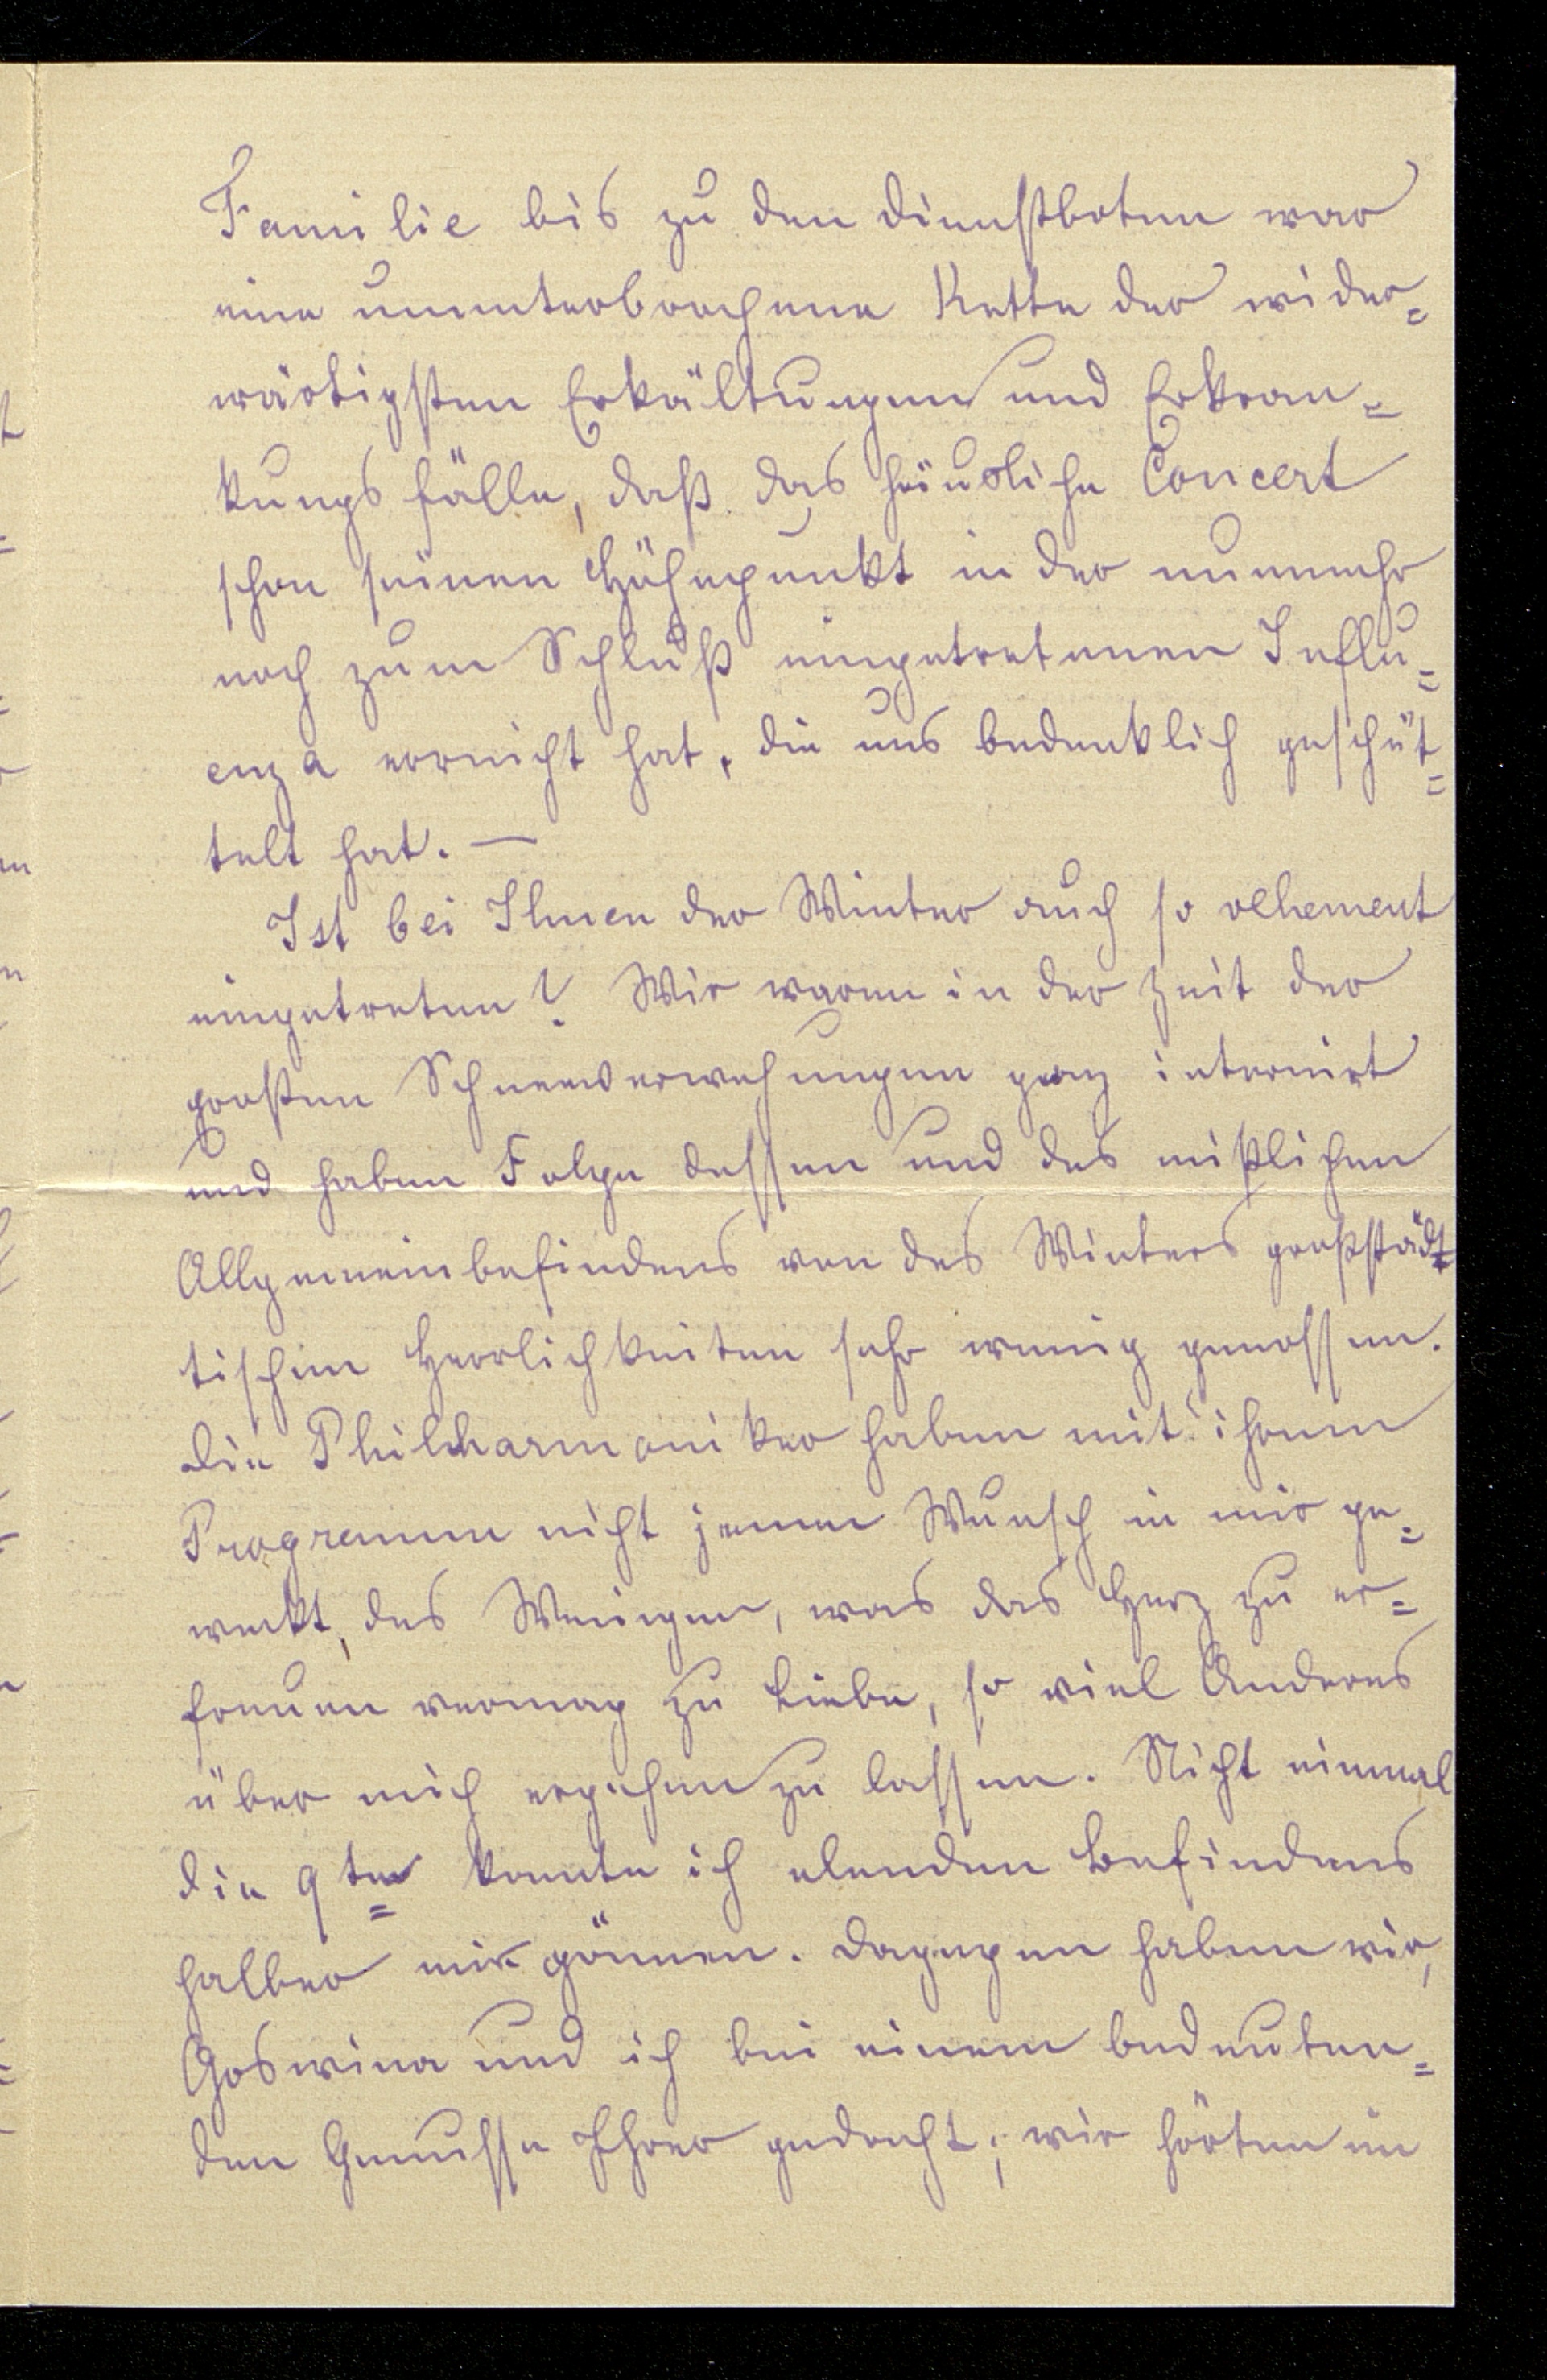 Familie bis zu den Dienstboten war
eine ununterbrochene Kette der wider=
wärtigsten Erkältungen und Erkran=
kungsfälle, daß das häusliche Concert
schon seinen Höhepunkt in der nunmehr
noch zum Schluß eingetretenen Influ=
enza erreicht hat, die uns bedenklich geschüt=
telt hat. —
Ist bei Ihnen der Winter auch so vehement
eingetreten? Wir waren in der Zeit der
großen Schneeverwehungen ganz internirt
und haben Folge dessen und des mißlichen
Allgemeinbefindens von des Winters großstädt=
tischen Herrlichkeiten sehr wenig genossen.
Die Philharmoniker haben mit ihrem
Programm nicht jenen Wunsch in mir ge=
weckt, des Wenigen, was das Herz zu er=
freuen vermag zu Liebe, so viel Anderes
über mich ergehen zu lassen. Nicht einmal
die 9te konnte ich elenden Befindens
halber mir gönnen. Dagegen haben wir,
Goswina und ich bei einem bedeuten=
den Genusse Ihrer gedacht; wir hörten im